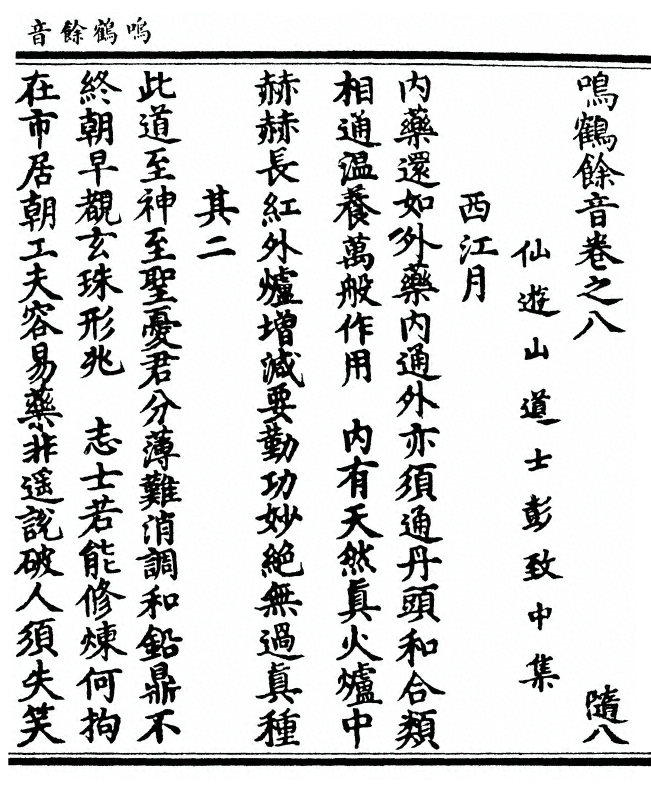 鳴鶴餘音
鳴鶴餘音卷之八 隨八
仙遊山道士彭致中集
西江月
内藥還如外藥内通外亦須通丹頭和合類
相通温養萬般作用 内有天然眞火爐中
赫赫長紅外爐增減要勤功妙絶無過眞種
其二
此道至神至聖憂君分薄難消調和鉛鼎不
終朝早覩玄珠形兆 志士若能修煉何拘
在市居朝工夫容易藥非遥說破人須失笑